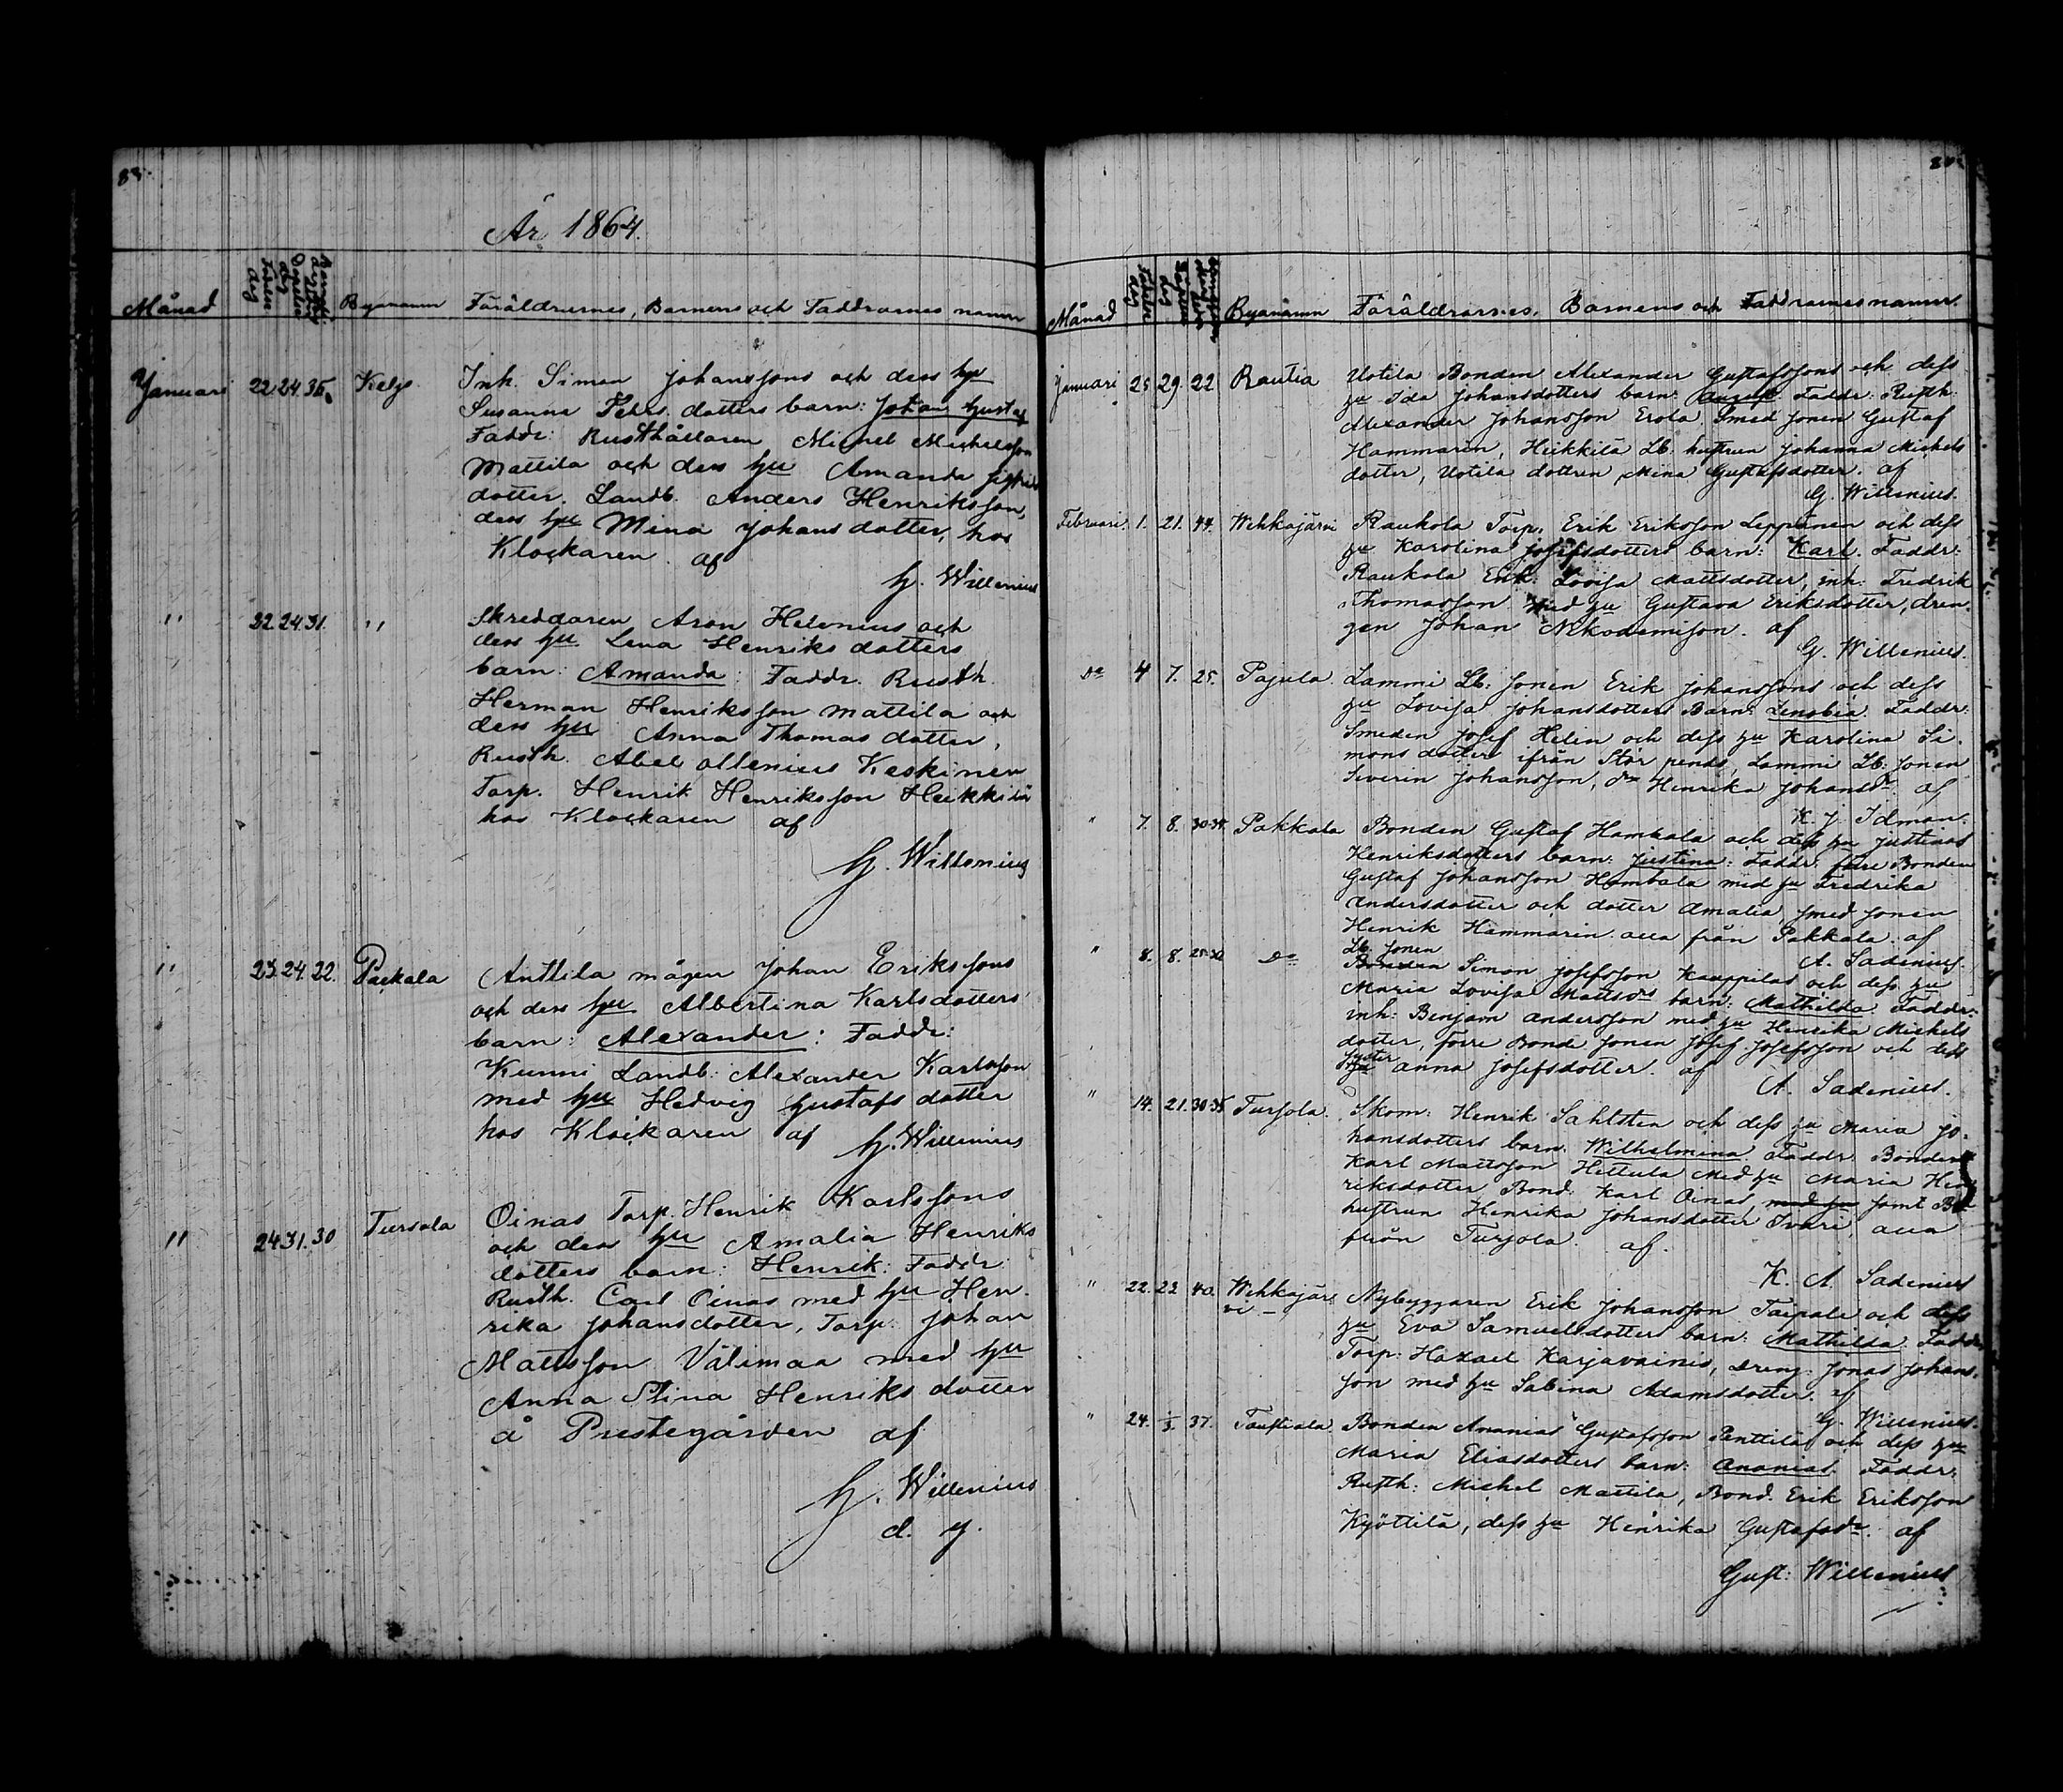 År 1864.
Månad Byanamn Föräldrarnes, Barnens och Faddrarnes namn
Januari 22 24 35. Kelgo Inh. Simon Johanssons och dess hu
Susanna Pehrs dotters barn: Johan Gustaf
Faddr: Rusthållaren Michel Michelsson
Mattila och dess hu Amanda Sigfrids
dotter. Landb. Anders Henriksson,
dess hu Mina Johans dotter, hos
Klockaren af
G. Willenius
" 22. 24 31. " Skreddaren Aron Helenius och
dess hu Lena Henriks dotters
barn: Amanda: Faddr. Rusth.
Herman Henriksson Mattila och
dess hu Anna Thomas dotter,
Rusth. Abel Ollenius Keskinen
Torp. Henrik Henriksson Heikkilä
hos Klockaren af
G. Willenius
" 23. 24. 22. Packala Anttila mågen Johan Erikssons
och dess hu Albertina Karlsdotters
barn: Alexander: Faddr:
Kunni Landb: Alexander Karlsson
med hu Hedvig Gustafs dotter
hos Klockaren af G. Willenius
" 24 31. 30 Tursola Oinas Torp. Henrik Karlssons
och dess hu Amalia Henriks
dotters barn: Henrik: Faddr
Rusth. Carl Oinas med hu Hen-
rika Johansdotter, Torp. Johan
Mattsson Välimaa med hu
Anna Stina Henriks dotter
å Prestegården af
G. Willenius
d. y.
Månad Byanamn Föräldrarnes, Barnens och Faddrarnes namn
Januari 25 29. 22 Rautia Uotila Bonden Alexander Gustafssons och dess
hu Ida Johansdotters barn: August. Faddr: Rusth.
Alexander Johansson Erola. Smed sonen Gustaf
Hammarén, Heikkilä Lb. hustrun Johanna Michels
dotter, Uotila dottren Mina Gustafsdotter. af
G. Willenius.
Februari 1. 21. 44. Wehkajärvi Raukola Torp. Erik Eriksson Leppänen och dess
hu Karolina Josefsdotters barn: Karl. Faddr:
Raukola Enk. Lovisa Mattsdotter, inh. Fredrik
Thomasson med hu Gustava Eriksdotter, dren-
gen Johan Nikodemison. af
G. Willenius.
Do 4 7. 25. Pajula. Lammi Lb: sonen Erik Johanssons och dess
hu Lovisa Johansdotters Barn: Zenobia. Faddr:
Smeden Josef Helin och dess hu Karolina Si-
mons dotter ifrån Stor pends, Lammi Lb: sonen
Severin Johansson, do Henrika Johansdr. af
K. J. Idman.
" 7. 8. 30-35. Pakkala Bonden Gustaf Hambala och dess hu Justinas
Henriksdotters barn: Justina: Faddr: förre Bonden
Gustaf Johansson Hambala med hu Fredrika
Andersdotter och dotter Amalia, smed sonen
Henrik Hammarin alla från Pakkala. af
A. Sadenius.
" 8. 8. 25-30 Do Lb. sonen
Simon Josefsson Kauppilas och dess hu
Maria Lovisa Mattsdrs barn: Mathilda. Faddr:
inh: Benjam Andersson med hu Henrika Michels
dotter, förre Bonde sonen Josef Josefsson och dess
syster Anna Josefsdotter. af
A. Sadenius.
" 14. 21. 30-35 Tursola. Skom: Henrik Sahlsten och dess hu Maria Jo-
hansdotters barn. Wilhelmina. Faddr. Bonden
Karl Mattsson Hettula med hu Maria Hen-
riksdotter Bond. Karl Oinas, med hu samt
hustrun Henrika Johansdotter Tvari, alla
från Tursola. af.
K. A. Sadenius
" 22. 23 40. Wehkajär-
vi Nybyggaren Erik Johansson Taipale och dess
hu Eva Samuelsdotters barn: Mathilda. Faddr
Torp: Haxael Karjavainis, Dreng Jonas Johans-
son med hu Sabina Adamsdotter. af
G. Willenius.
" 24. 37. Taustiala Bonden Ananias Gustafsson Penttilä och dess hu
Maria Eliasdotters barn: Ananias. Faddr:
Rusth: Michel Mattila, Bond. Erik Eriksson
Kyöttilä, dess hu Henrika Gustafsdr. af
Gust: Willenius